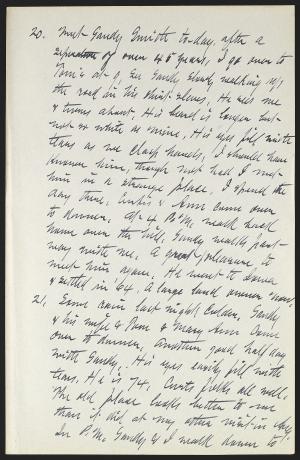 20. Meet Sandy Smith to-day, after a
separation of over 45 years, I go over to
Tom's at 9, see Sandy slowly walking up
the road in his shirt-sleeves. He sees me
& turns about. His beard is longer but
not so white as mine. His eyes fill with
tears as we clasp hands, I should have
known him, though not had I met
him in a strange place. I spend the
day there, Curtis & Ann come over
to dinner. At 4 P.M. walk back
home over the hill, Sandy walks part-
way with me. A great pleasure to
meet him again. He went to Iowa
& settled in 64. A large land owner now.
21. Some rain last night, Cooler, Sandy
& his wife & Tom & Mary Ann come
over to dinner, Another good half day
with Sandy. His eyes easily fill with
tears. He is 74. Curtis folks all well.
The old place looks better to me
than it did at my other visit in
In P.M. Sandy & I walk down to